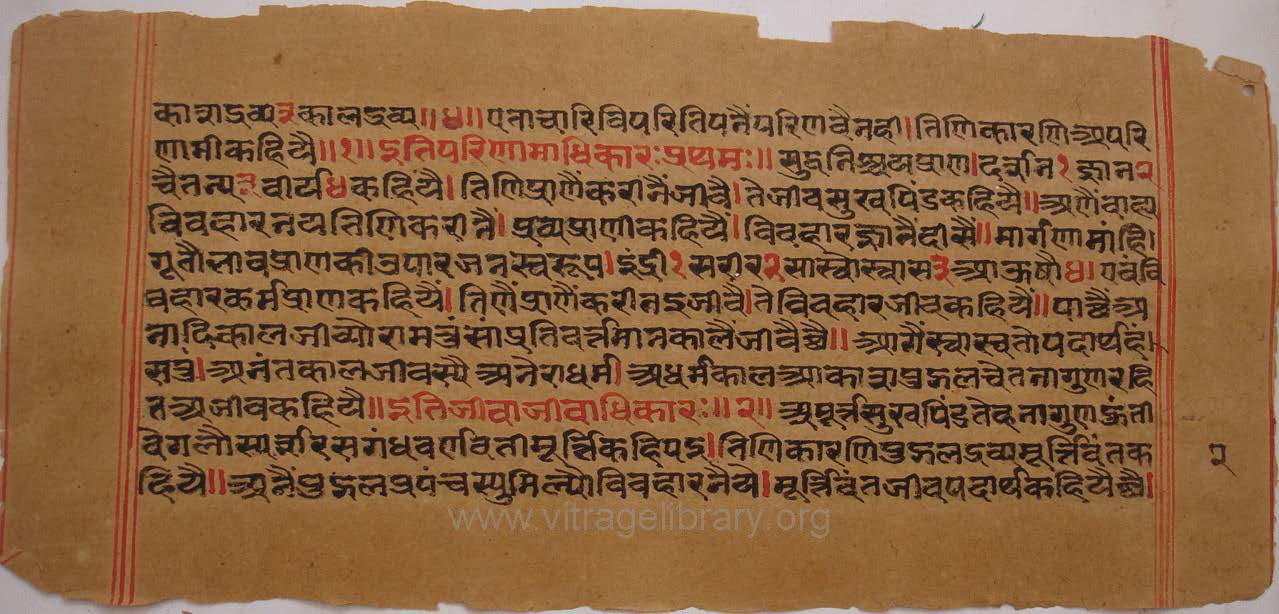 काशद्रव्य ३ कालद्रव्य ॥ ४ ॥ एनाचारिविपरितिपनैंपरिणवैनही । तिणिकारणिअपरि
णामीकहियै ॥ १ ॥ इतिपरिणामाधिकारः प्रथमः ॥ सुद्धनिश्चयप्राण । दर्शन १ ज्ञान २
चैतन्य ३ वीर्य ४ कहियै । तिणिप्राणैंकरीनैंजीवै । तेजीवसुखपिंडकहियै ॥ अणैंबाह्य
विवहारनयतिणिकरीनैं । प्रव्यप्राणीकहियैं । विवहारज्ञानैदीसैं ॥ मार्गणामांहि ।
गूतौलावप्राणकीउपारजनस्वरूप । इंद्री १ सरीर २ सास्वोस्वास ३ आऊषौ ४ । एवंवि
वहारकर्मप्राणकहियैं । तिणैंप्राणैंकरीनइजीवै । तेविवहारजीवकहियै ॥ पाछैंअ
नादिकालजीव्योरामचंसाप्रतिवर्त्तमानकालैंजीवैछै ॥ आगैंस्वास्वतोपदार्थहां ।
सबुं । अनंतकालजीवस्यै अनैराधर्म । अधर्मकालआकाशपुद्गलचेतनागुणरहि
तअजीवकहियै ॥ इतिजीवाजीवाधिकारः ॥ २ ॥ अपूर्वसुखपिंडतेहनागुणहुंती
वेगलौस्पर्शरसगंधवर्णवतीमूर्त्तिकहिएइ । तिणिकारणिपुद्गलद्रव्यमूर्त्तिवंतक
हियै ॥ अनैंपुद्गलप्रपंचस्युमिल्यौविवहारनैयै । मूर्त्तिवंतजीवपदार्थकहियैछै ।
२
www.vitragelibrary.org